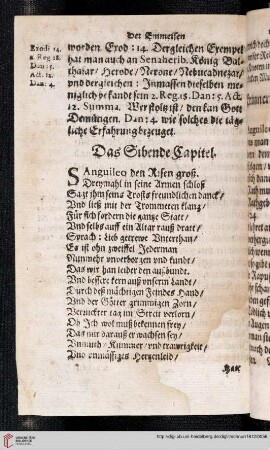 Der Emmeisen
Exodi 14.
2. Reg 18.
Dan: 5.
Act. 12.
Dan: 4.
worden Exod: 14. Dergleichen Exempel
hat man auch an Senaherib. König Bal-
thasar/ Herode/ Nerone/ Nebucadnezar/
vnd dergleichen: Inmassen dieselben me-
niglich bekandt sein 2. Reg. 18. Dan: 5. Act.
12. Summa. Wer stoltz ist/ den kan Gott
Demütigen. Dan: 4. wie solches die täg-
liche Erfahrung bezeuget.
Das Sibende Capitel.
SAnguileo den Risen groß.
Dreymahl in seine Armen schloß
Sagt ihm seins Trosts freundlichen danck/
Vnd ließ mit der Trommeten klang/
Für sich fordern die gantze Statt/
Vnd selbs auff ein Altar rauß dratt/
Sprach: lieb getrewe Vnterthan/
Es ist ohn zweiffel Jederman
Nunmehr vnverborgen vnd kunde/
Das wir han leider den außbundt.
Vnd bessere kern auß vnserm Landt/
Durch deß mächtigen Feindes Hand/
Vnd der Götter grimmigen Zorn/
Verruckter tag im Streit verlorn/
Ob Ich wol muß bekennen frey/
Das mir darauß erwachsen sey/
Vnmuth/ Kummer/ vnd trawrigkeit/
Vnd vnmässiges Hertzenleid/
Hat
http://digi.ub.uni-heidelberg.de/diglit/
UNIVERSITÄTS-
BIBLIOTHEK
HEIDELBERG